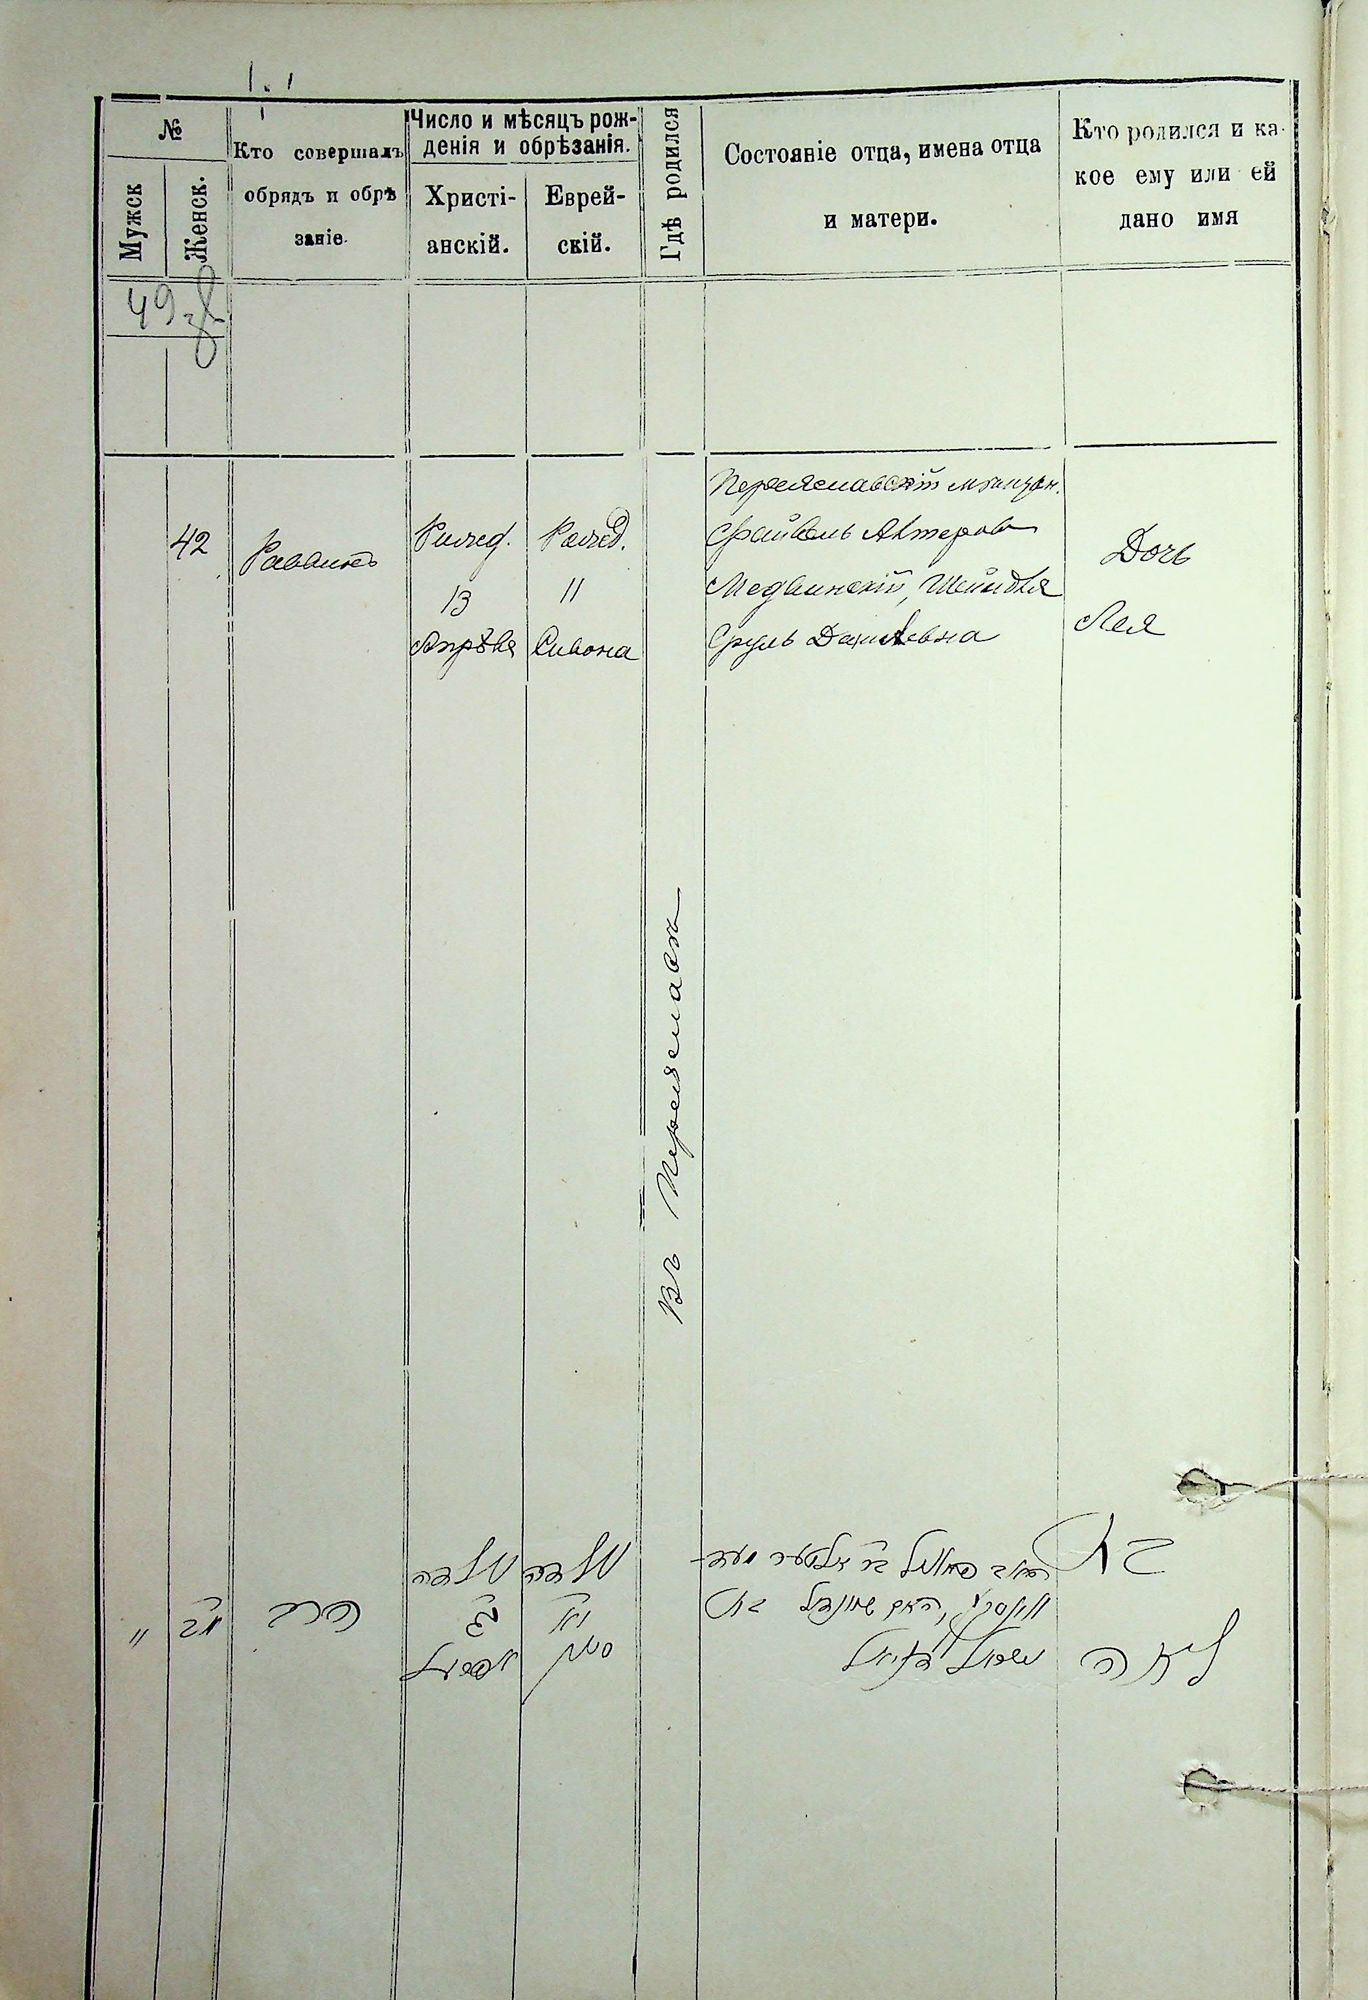 №
Мужск
Женск.
Кто совершалъ
обрядъ и обрѣ
заніе.
Число и мѣсяцъ рож-
денія и обрѣзанія.
Христі-
анскій.
Еврей-
скій.
Гдѣ родился
Состояніе отца, имена отца
и матери.
Кто родился и ка-
кое ему или ей
дано имя
49
42
Раввинъ
Рожд.
13
Апрѣля
Рожд.
11
Сивона
Въ Переяславѣ
Переяславскій мѣщан.
Файвель Алтеровъ
Медвинскій, Шейндля
Сруль Даниловна
Дочь
Лея
"
מב
נולדה
נולדה
יא
סיון
בת
לאה